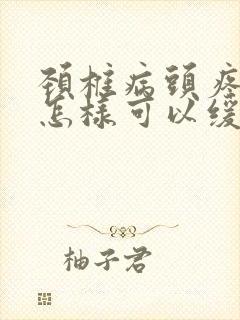 頚椎病頭疼
怎樣可以緩
柚子君